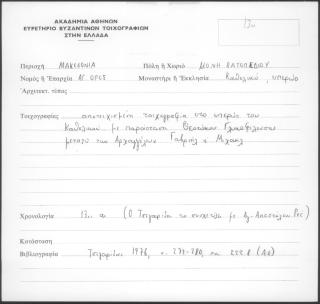 ΑΚΑΔΗΜΙΑ ΑΘΗΝΩΝ
ΕΥΡΕΤΗΡΙΟ ΒΥΖΑΝΤΙΝΩΝ ΤΟΙΧΟΓΡΑΦΙΩΝ
ΣΤΗΝ ΕΛΛΑΔΑ
Περιοχή ΜΑΚΕΔΟΝΙΑ Πόλη ή Χωριό ΜΟΝΗ ΒΑΤΟΠΕΔΙΟΥ
Νομός ή Επαρχία ΑΓ. ΟΡΟΣ Μοναστήρι ή Εκκλησία Καθολικό, υπερώο
Αρχιτεκτ. τύπος
Τοιχογραφίες αποτειχισμένη τοιχογραφία στο υπερώο του
Καθολικού με παράσταση Θεοτόκου Γλυκοφιλούσας
μεταξύ των Αρχαγγέλων Γαβριήλ κ Μιχαήλ
Χρονολογία (Ο Τσιγαρίδας το συσχετίζει με Αγ. Αποστόλους Θεσ)
Κατάσταση
Βιβλιογραφία Τσιγαρίδας 1996,